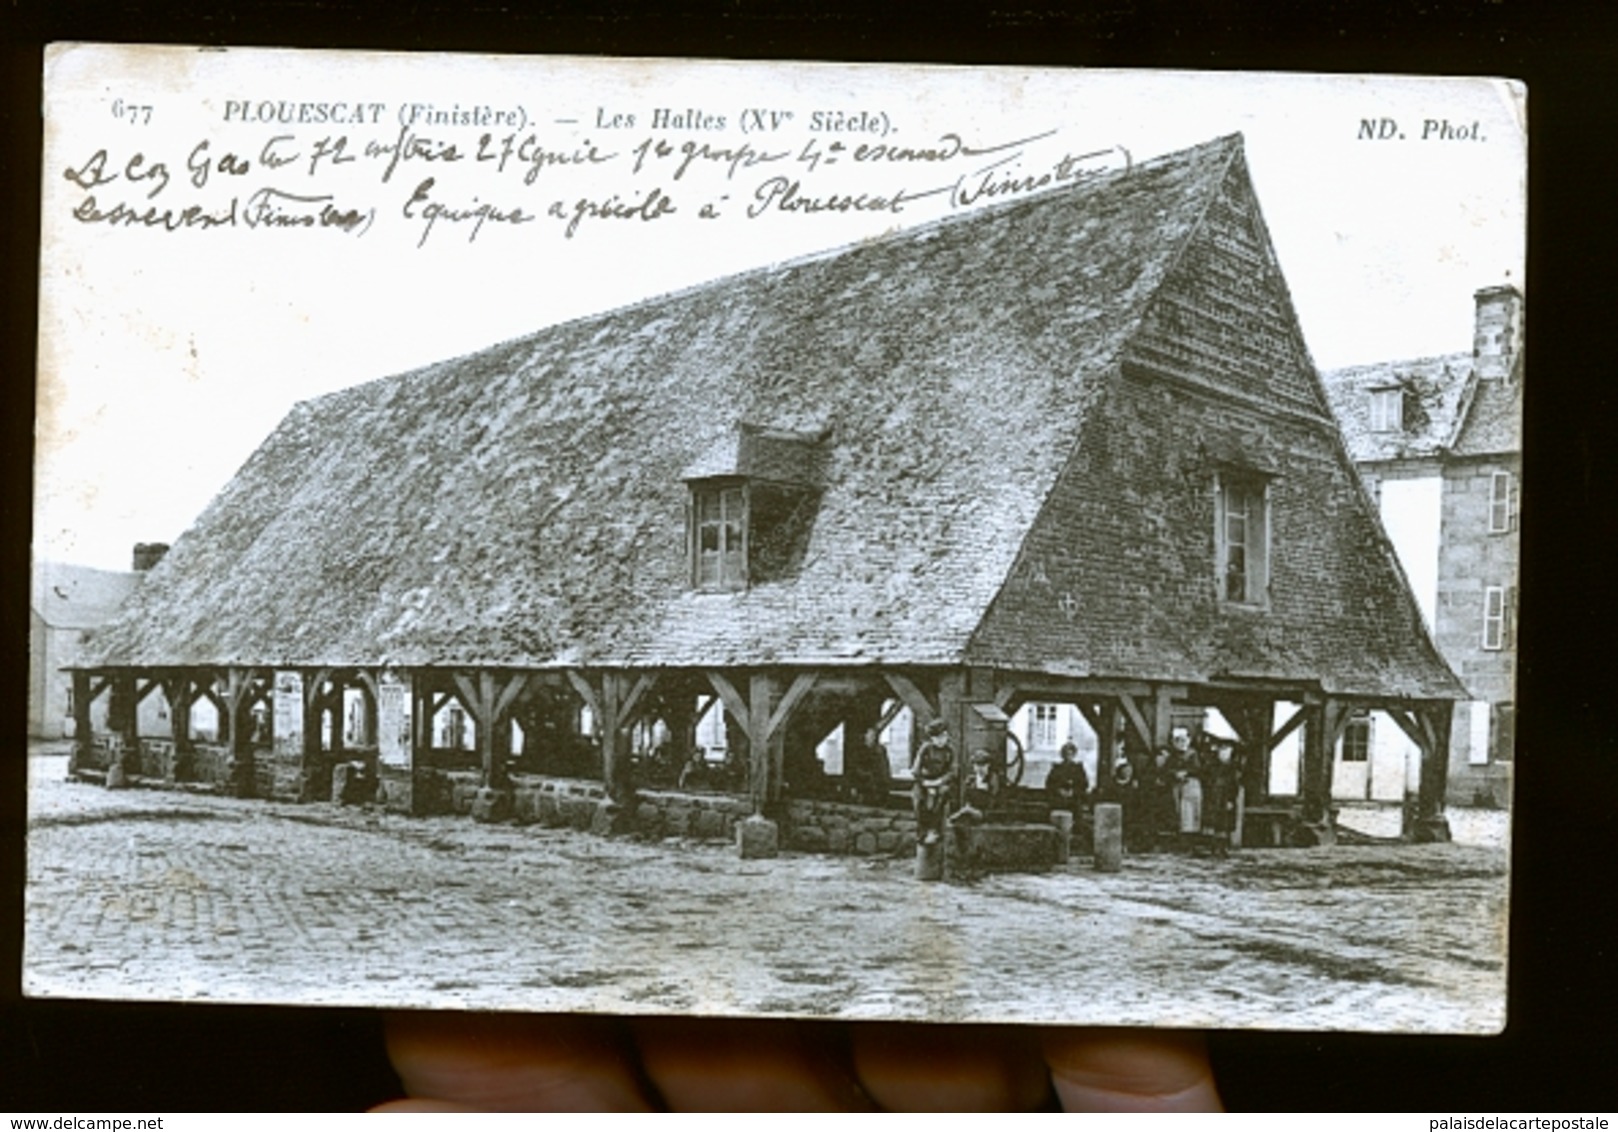 677 PLOUESCAT (Finistère). — Les Halles (XVe Siècle). ND. Phot.
72 27 Cgnie groupe 4e
Lesneven (Finistère) Equique agricole à Plouescat (Finistère)
delcampe.net
palaisdelacartepostale